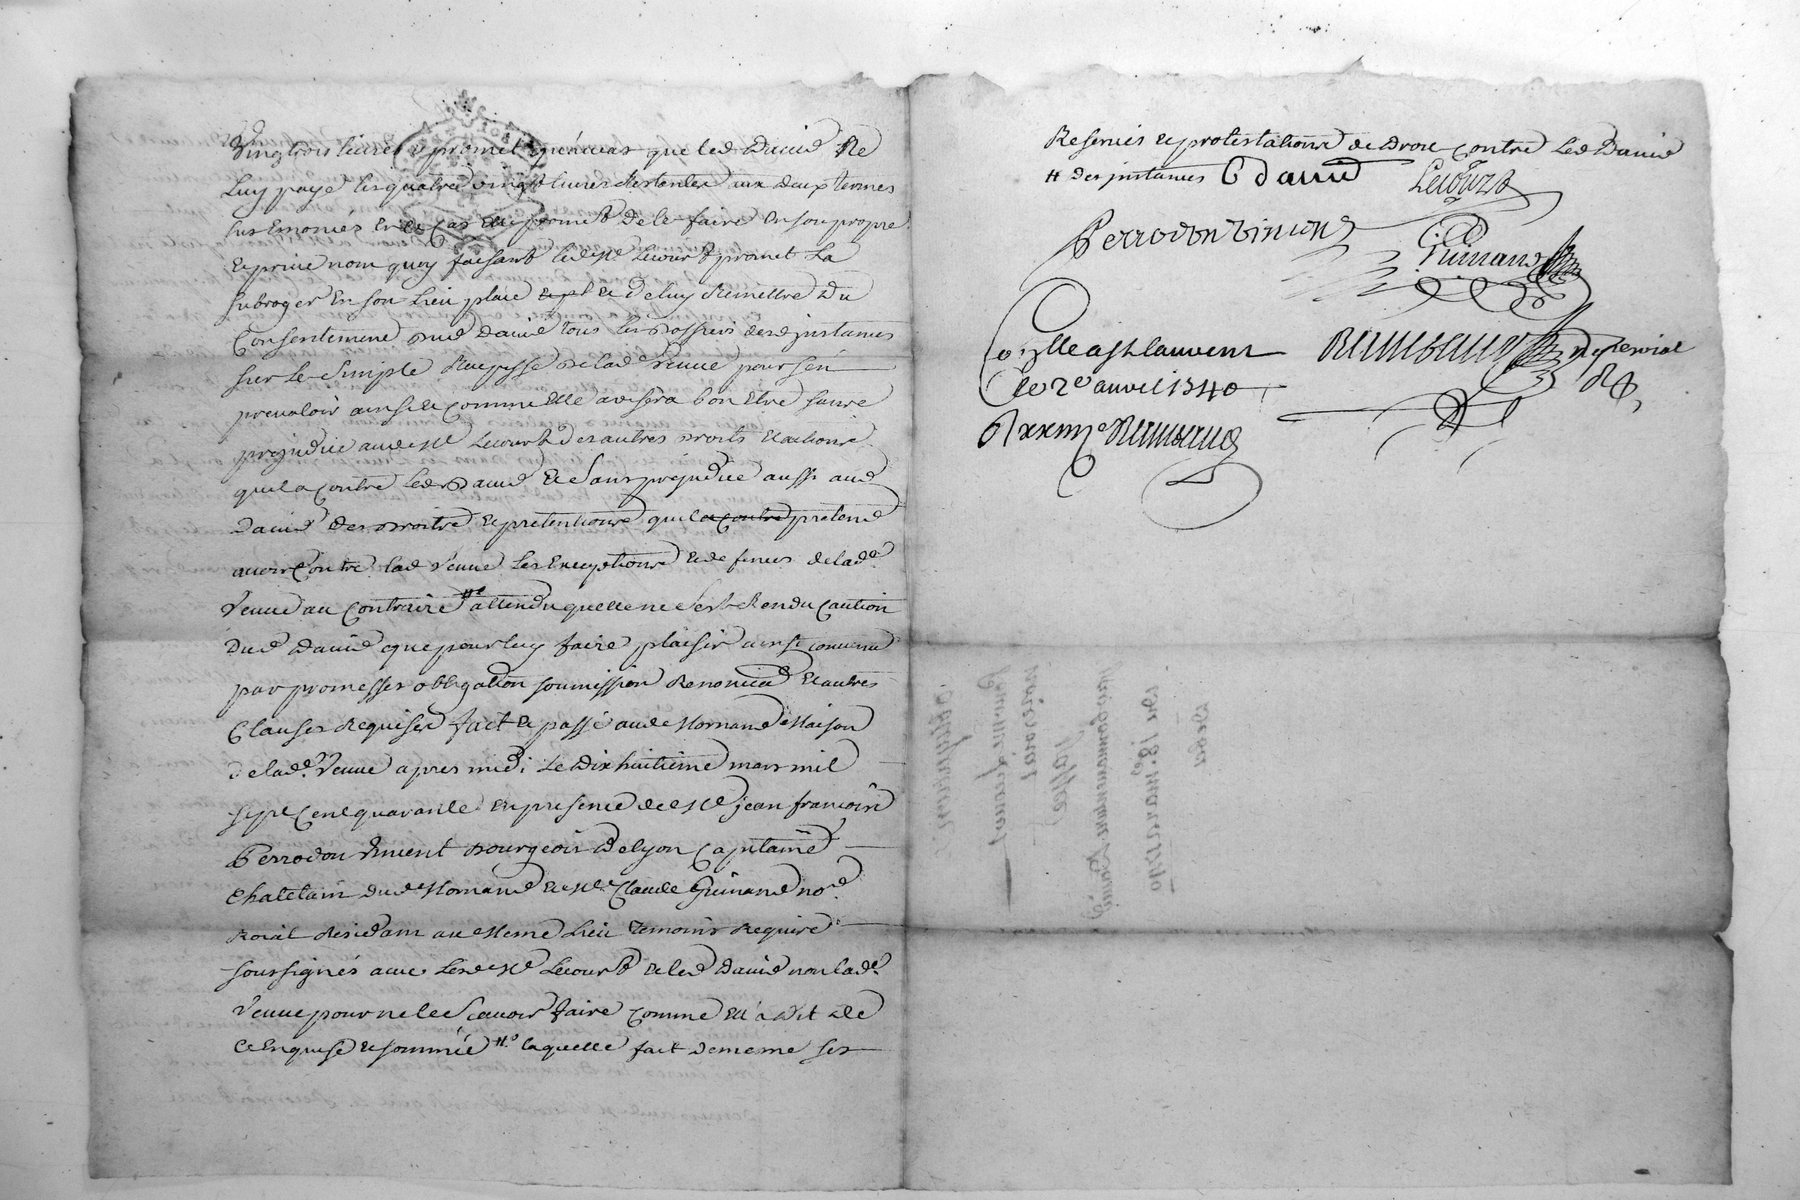 Vingt trois livres et promet qu'en cas que led David Ne
Luy paye les quatre vingt livres Restantes aux deux termes
sus Enoncés En ce cas Elle promet De le faire En son propre
Et privé nom quoy faisant led Me Lecourt promet La
subroger En son Lieu place et De luy Remettre Du
Consentement dud David tous les dossiers desd instances
sur Le simple Recepissé de lad Veuve pour s'en
prevaloir ainsi et Comme Elle avisera bon Etre sauve
prejudice aud Me Lecourt des autres droits Et actions
qu'il a Contre Led David Et sans prejudice aussi aud
David des droits Et pretentions qu'il a contre pretend
avoir Contre lad Veuve Les Exceptions Et defences de lad.e
Veuve au Contraire attendu quelle ne s'est Rendu Caution
Dud David que pour luy faire plaisir ainsi convenu
par promesses obligation soumission Renonciaon Et autres
Clauses Requises fait Et passé aud Mornand Maison
de lad.e Veuve apres midi Le Dix huitieme mars mil
sept Cent quarante En presence de Me jean françois
Perrodon Vincent Bourgeois De lyon Capitaine
Chatelain dud Mornand Et Me Claude Guinand no.re
Roial Residant au Meme Lieu temoins Requis
soussignés avec Led Me Lecourt Et led David non lad.e
Veuve pour ne le sçavoir faire Comme Ell'a dit de
Ce Enquise Et sommée laquelle fait de meme ses
Reserves Et protestations de Droit Contre Led David
# des instances C David Lecourt
Perrodon Vincent
Guinand
Con.lle a St Laurent Rambaud no.re roial
le 2e avril 1740
Rambaud